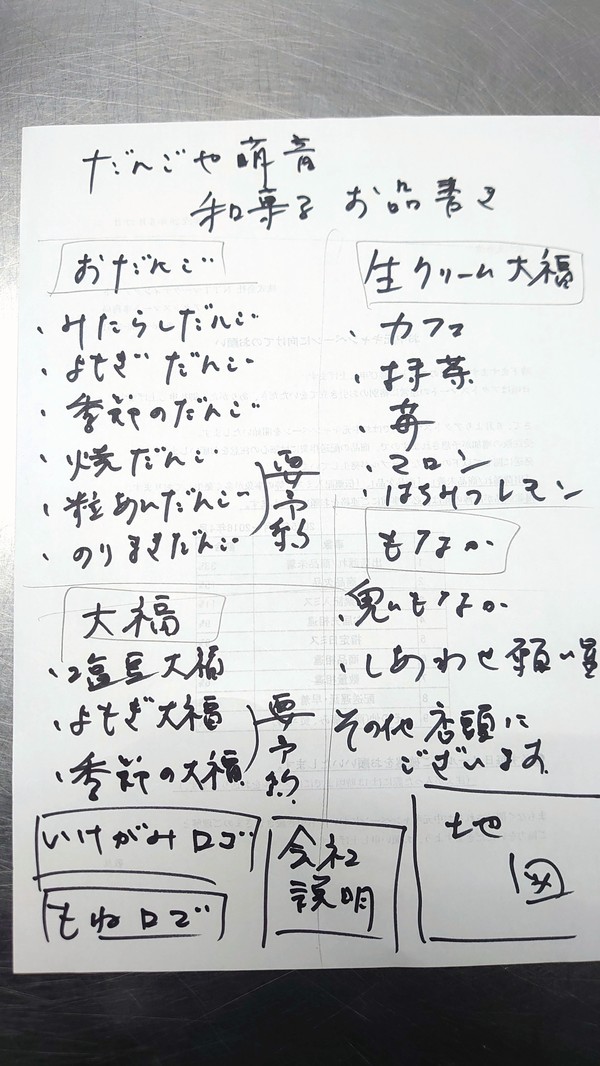 だんごや萌音
和菓子 お品書き
おだんご
・みたらしだんご
・よもぎ だんご
・季節のだんご
・焼だんご
・粒あんだんご
・のりまきだんご
要予約
大福
・塩豆大福
・よもぎ大福
・季節の大福
要予約
生クリーム大福
・カフェ
・抹茶
苺
・マロン
はちみつレモン
もなか
・鬼いもなか
・しあわせ願い
その他 店頭に
ございます
いけがみロゴ
もねロゴ
会社
説明
地
図